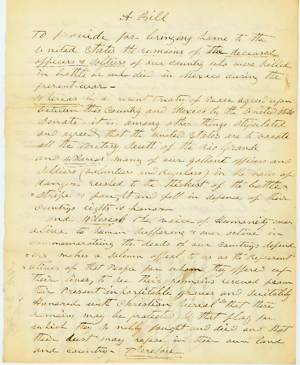 A Bill
To provide for bringing home to the
United States the remains of the deceased
officers & soldiers of our country who were killed
in battle or who died in Mexico during the
present war—
Whereas in a recent treaty of Peace agreed upon
between this Country and Mexico by the United States
Senate, it is among other things stipulated
and agreed that the United States are to vacate
all the territory South of the Rio Grande
and Whereas many of our gallant officers and
Soldiers (volunteers and regulars) in the hour of
danger rushed to the thickest of the battle
strife & fought and fell in defence of their
Countrys rights & honor
and Whereas the voice of Humanity ever
alive to human sufferings & ever active in
commemorating the deeds of our Countrys defend
ers makes a solemn appeal to us as the represent
atives of that People for whom they offered up
their lives, to see their remains rescued from
their present inhospitable graves and suitably
Honored with Christian burial that their
remains may be protected by that flag for
which they so nobly fought and died and that
their dust may repose in their own land
and country— Therefore